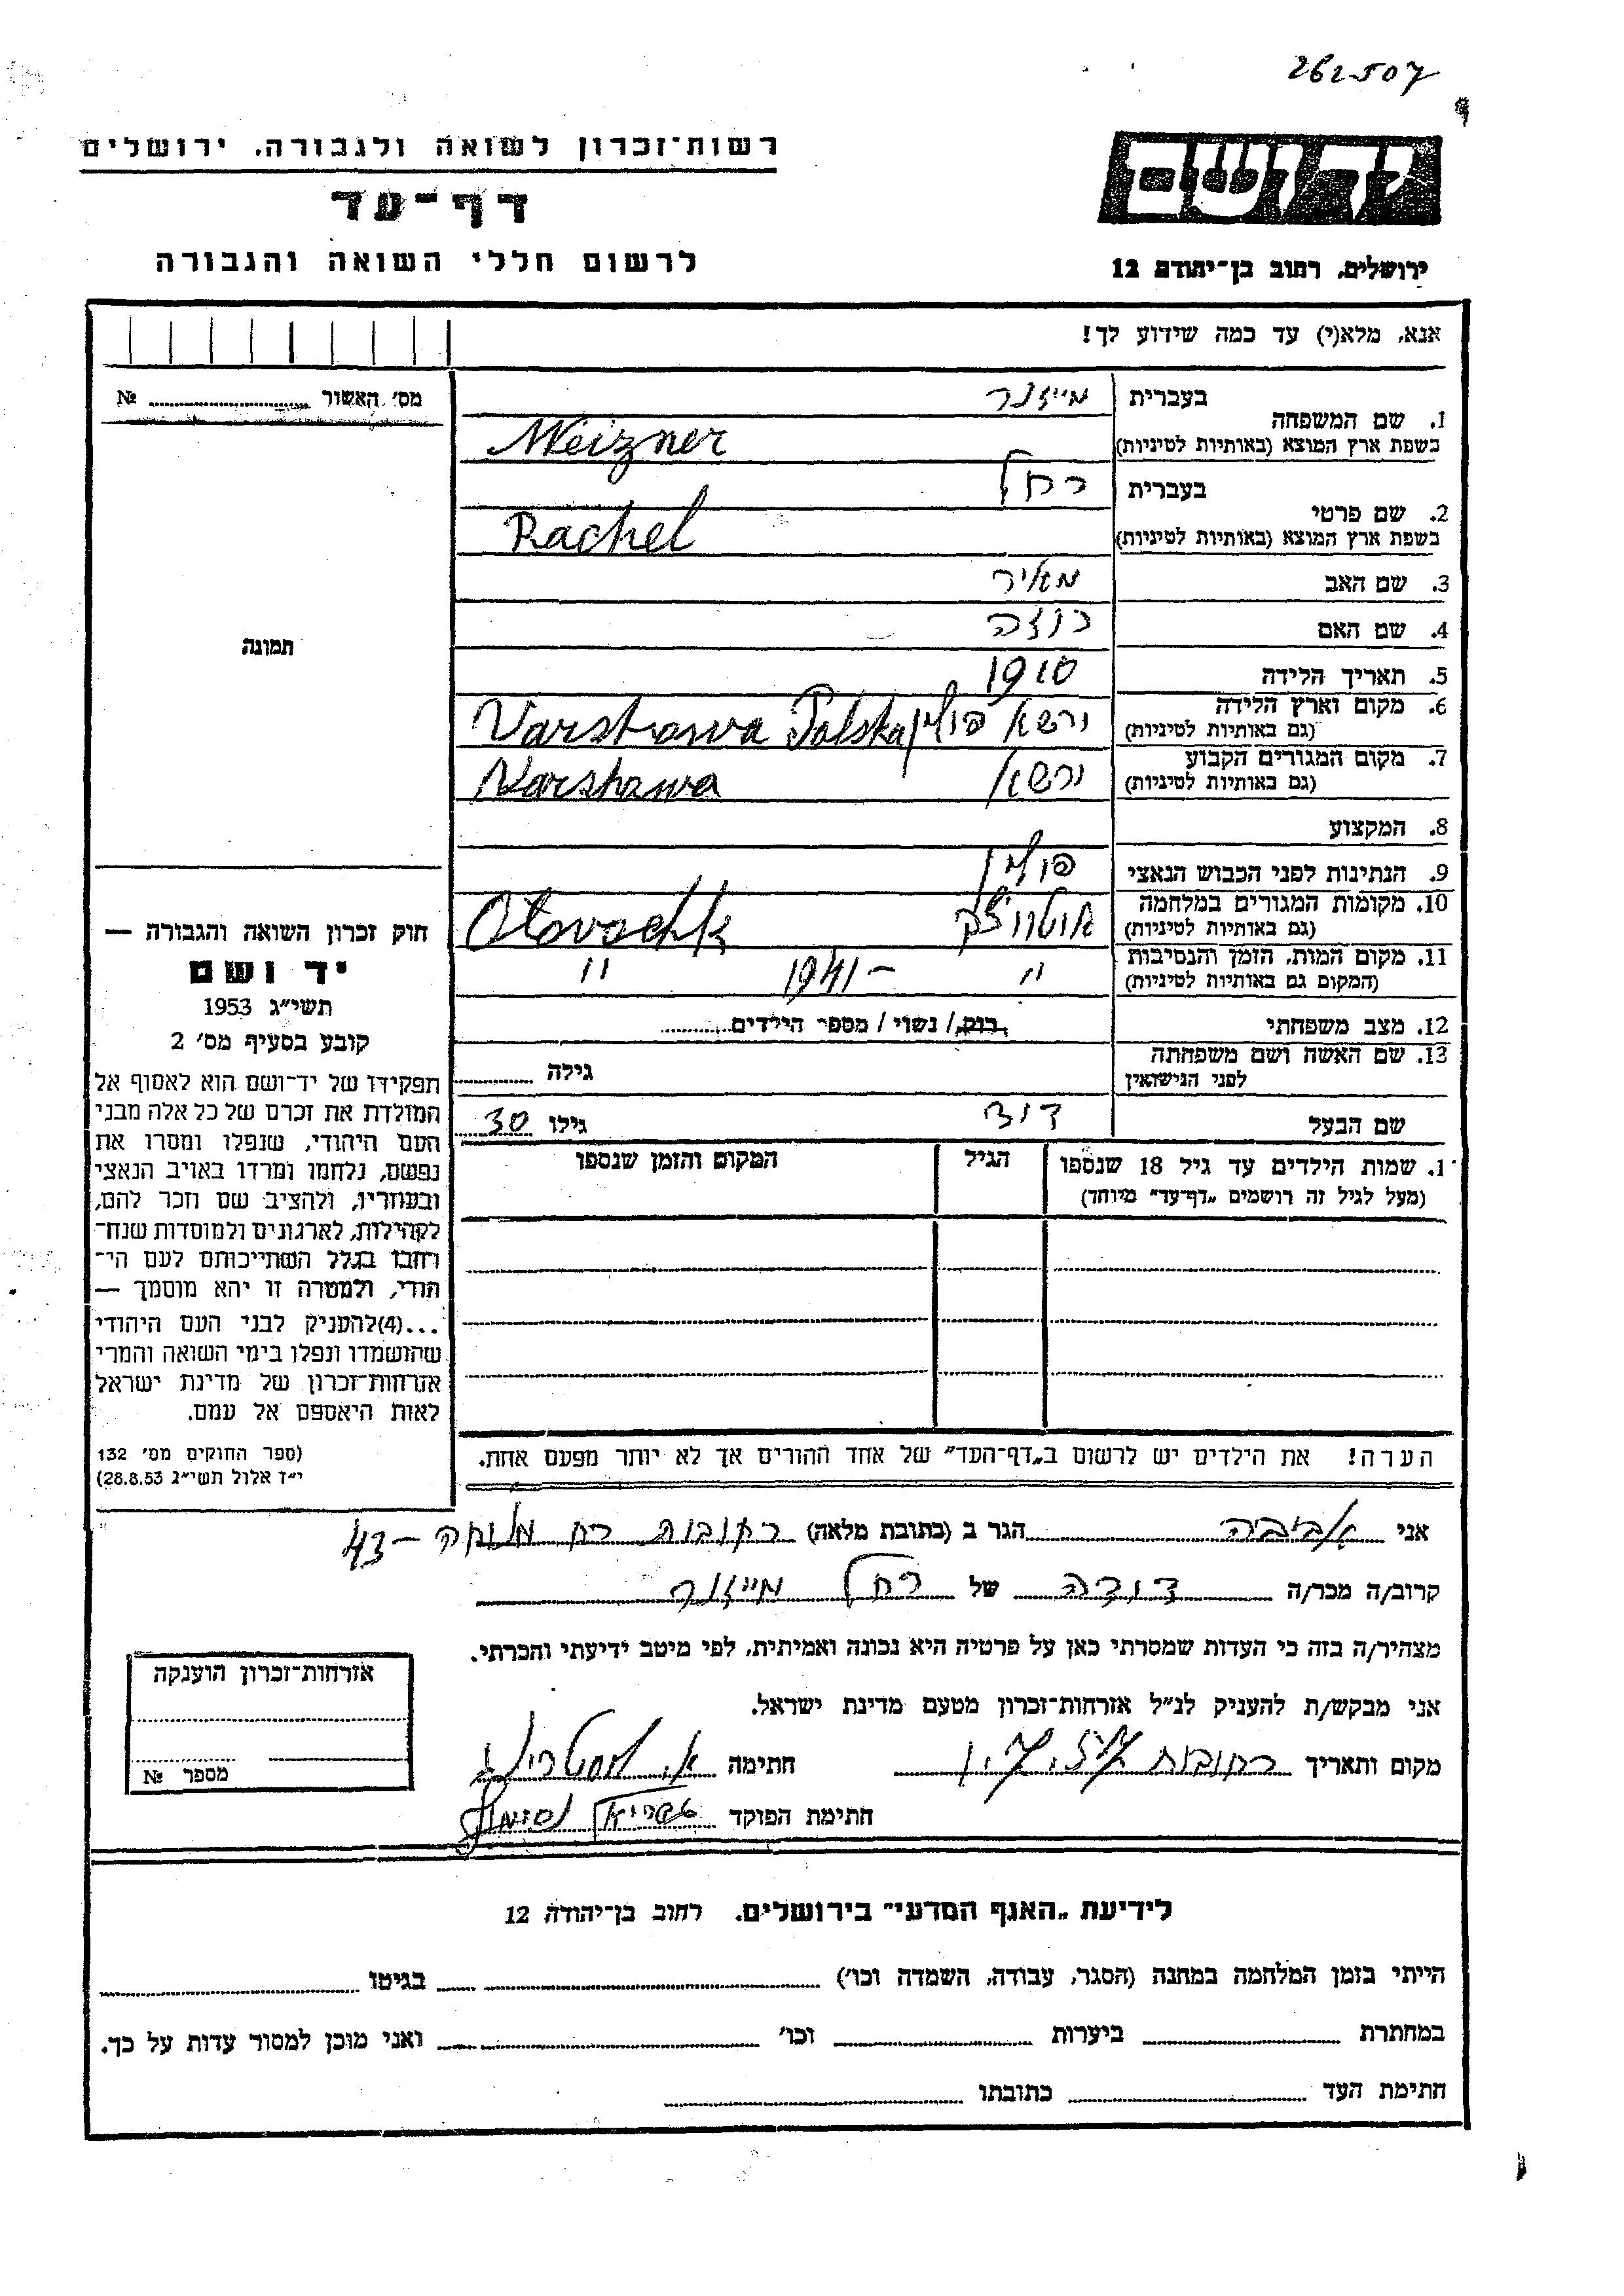 262507
רשות־זכרון לשואה ולגבורה, ירושלים
דף־עד
לרשום חללי השואה והגבורה
יד ושם
ירושלים, רחוב בן־יהודה 12
אנא, מלא(י) עד כמה שידוע לך!
מס׳ האשור № 
תמונה
1. שם המשפחה בעברית מייזנר
בשפת ארץ המוצא (באותיות לטיניות) Meizner
2. שם פרטי בעברית רחל
בשפת ארץ המוצא (באותיות לטיניות) Rachel
3. שם האב מאיר
4. שם האם רוזה
5. תאריך הלידה 1910
6. מקום וארץ הלידה (גם באותיות לטיניות) ורשא פולין Varshawa Polska
7. מקום המגורים הקבוע (גם באותיות לטיניות) ורשא Varshawa
8. המקצוע
9. הנתינות לפני הכבוש הנאצי פולין
10. מקומות המגורים במלחמה (גם באותיות לטיניות) אוטווצק Otovochk
11. מקום המות, הזמן והנסיבות (המקום גם באותיות לטיניות) " 1941- "
12. מצב משפחתי רוק/ נשוי / מספר הילדים
13. שם האשה ושם משפחתה לפני הנישואין גילה
שם הבעל דוד גילו 30
1. שמות הילדים עד גיל 18 שנספו הגיל המקום והזמן שנספו
(מעל לגיל זה רושמים „דף־עד״ מיוחד)
הערה! את הילדים יש לרשום ב„דף־העד״ של אחד ההורים אך לא יותר מפעם אחת.
חוק זכרון השואה והגבורה —
יד ושם
תשי״ג 1953
קובע בסעיף מס׳ 2
תפקידו של יד־ושם הוא לאסוף אל
המולדת את זכרם של כל אלה מבני
העם היהודי, שנפלו ומסרו את
נפשם, נלחמו ומרדו באויב הנאצי
ובעוזריו, ולהציב שם וזכר להם,
לקהילות, לארגונים ולמוסדות שנח־
רחבו בגלל השתייכותם לעם הי־
הודי, ולמטרה זו יהא מוסמך —
...(4)להעניק לבני העם היהודי
שהושמדו ונפלו בימי השואה והמרי
אזרחות־זכרון של מדינת ישראל
לאות היאספם אל עמם.
(ספר החוקים מס׳ 132
י״ז אלול תשי״ג 28.8.53)
אני אביבה הגר ב (כתובת מלאה) רחובות רח מלוחה -43
קרוב/ה מכר/ה דודה של רחל מייזנר
מצהיר/ה בזה כי העדות שמסרתי כאן על פרטיה היא נכונה ואמיתית, לפי מיטב ידיעתי והכרתי.
אני מבקש/ת להעניק לנ״ל אזרחות־זכרון מטעם מדינת ישראל.
מקום ותאריך רחובות חתימה א.
חתימת הפוקד
אזרחות־זכרון הוענקה
מספר №
לידיעת „האגף המדעי״ בירושלים. רחוב בן־יהודה 12
הייתי בזמן המלחמה במחנה (הסגר, עבודה, השמדה וכו׳) בגיטו
במחתרת ביערות וכו׳ ואני מוכן למסור עדות על כך.
חתימת העד כתובתו